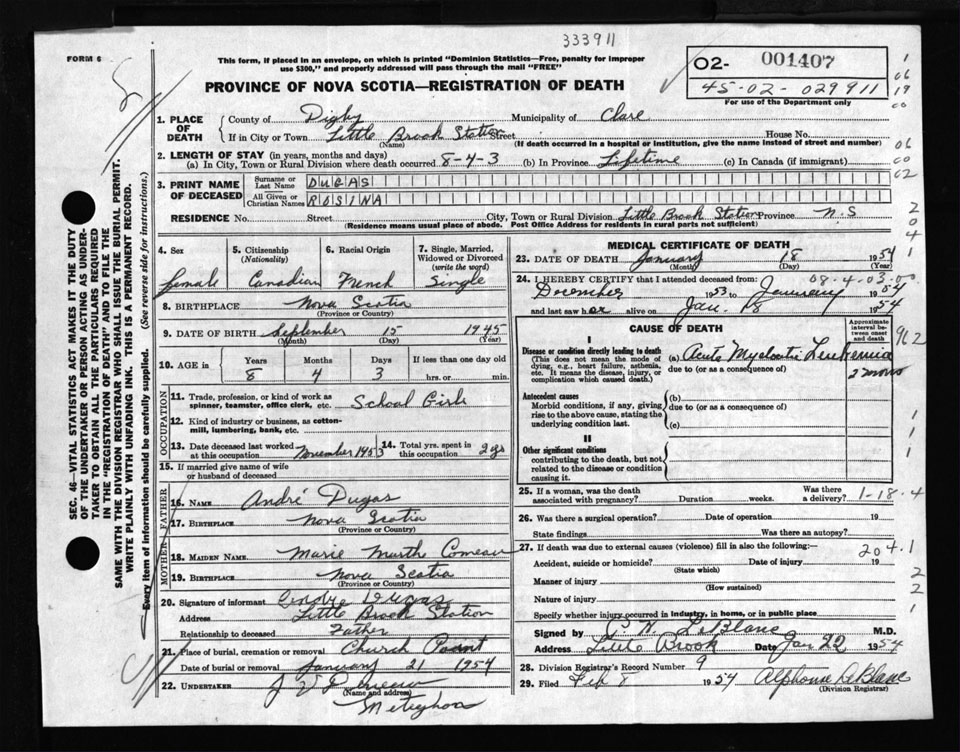 333911
FORM 6
This form, if placed in an envelope, on which is printed "Dominion Statistics—Free, penalty for improper
use $300," and properly addressed will pass through the mail "FREE"
O2- 001407
45-02-029911
For use of the Department only
PROVINCE OF NOVA SCOTIA—REGISTRATION OF DEATH
1. PLACE OF DEATH
County of Digby Municipality of Clare
If in City or Town Little Brook Station Street House No.
(Name) (If death occurred in a hospital or institution, give the name instead of street and number)
2. LENGTH OF STAY (in years, months and days)
(a) In City, Town or Rural Division where death occurred 8-4-3 (b) In Province Lifetime (c) In Canada (if immigrant)
3. PRINT NAME OF DECEASED
Surname or Last Name DUGAS
All Given or Christian Names ROSINA
RESIDENCE No. Street City, Town or Rural Division Little Brook Station Province N.S
(Residence means usual place of abode. Post Office Address for residents in rural parts not sufficient)
4. Sex female
5. Citizenship (Nationality) Canadian
6. Racial Origin French
7. Single, Married, Widowed or Divorced (write the word) Single
8. BIRTHPLACE Nova Scotia
(Province or Country)
9. DATE OF BIRTH September 15 1945
(Month) (Day) (Year)
10. AGE in Years Months Days If less than one day old
8 4 3 hrs. or min.
OCCUPATION
11. Trade, profession, or kind of work as spinner, teamster, office clerk, etc. School Girl
12. Kind of industry or business, as cotton-mill, lumbering, bank, etc.
13. Date deceased last worked at this occupation November 1953
14. Total yrs. spent in this occupation 2 yrs
15. If married give name of wife or husband of deceased
FATHER
16. NAME André Dugas
17. BIRTHPLACE Nova Scotia
(Province or Country)
MOTHER
18. MAIDEN NAME Marie Marthe Comeau
19. BIRTHPLACE Nova Scotia
(Province or Country)
20. Signature of informant Andre Dugas
Address Little Brook Station
Relationship to deceased Father
21. Place of burial, cremation or removal Church Point
Date of burial or removal January 21 1954
22. UNDERTAKER
(Name and address)
MEDICAL CERTIFICATE OF DEATH
23. DATE OF DEATH January 18 1954
(Month) (Day) (Year)
08-4-03-00
24. I HEREBY CERTIFY that I attended deceased from
December 1953 to January 1954
and last saw her alive on Jan. 18 1954
CAUSE OF DEATH
Approximate interval between onset and death
I
Disease or condition directly leading to death
(This does not mean the mode of dying, e.g., heart failure, asthenia, etc. It means the disease, injury, or complication which caused death.)
(a) Acute Myelocitic Leukemia
due to (or as a consequence of)
2 mos
962
Antecedent causes
Morbid conditions, if any, giving rise to the above cause, stating the underlying condition last.
(b)
due to (or as a consequence of)
(c)
II
Other significant conditions
contributing to the death, but not related to the disease or condition causing it.
25. If a woman, was the death associated with pregnancy? Duration weeks. Was there a delivery? 1-18-4
26. Was there a surgical operation? Date of operation 19
State findings Was there an autopsy?
27. If death was due to external causes (violence) fill in also the following:—
204.1
Accident, suicide or homicide? Date of injury 19
(State which)
Manner of injury
(How sustained)
Nature of injury
Specify whether injury occurred in industry, in home, or in public place
Signed by LeBlanc M.D.
Address Little Brook Date Jan 22 1954
28. Division Registrar's Record Number 9
29. Filed Feb 8 1954 Alphonse LeBlanc
(Division Registrar)
SEC. 46—VITAL STATISTICS ACT MAKES IT THE DUTY
OF THE UNDERTAKER OR PERSON ACTING AS UNDER-
TAKER TO OBTAIN ALL THE PARTICULARS REQUIRED
IN THE "REGISTRATION OF DEATH" AND TO FILE THE
SAME WITH THE DIVISION REGISTRAR WHO SHALL ISSUE THE BURIAL PERMIT.
WRITE PLAINLY WITH UNFADING INK. THIS IS A PERMANENT RECORD.
Every item of information should be carefully supplied. (See reverse side for instructions.)